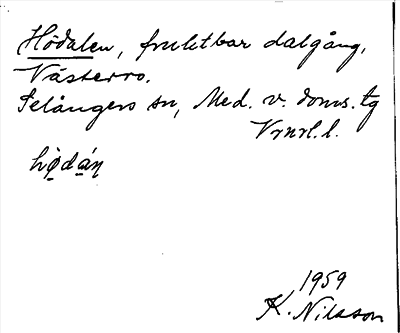 Hödalen, fruktbar dalgång,
Västerro.
Selångers sn, Med. v. doms. tg
Vrnrl. l.
hödán
1959
K. Nilsson